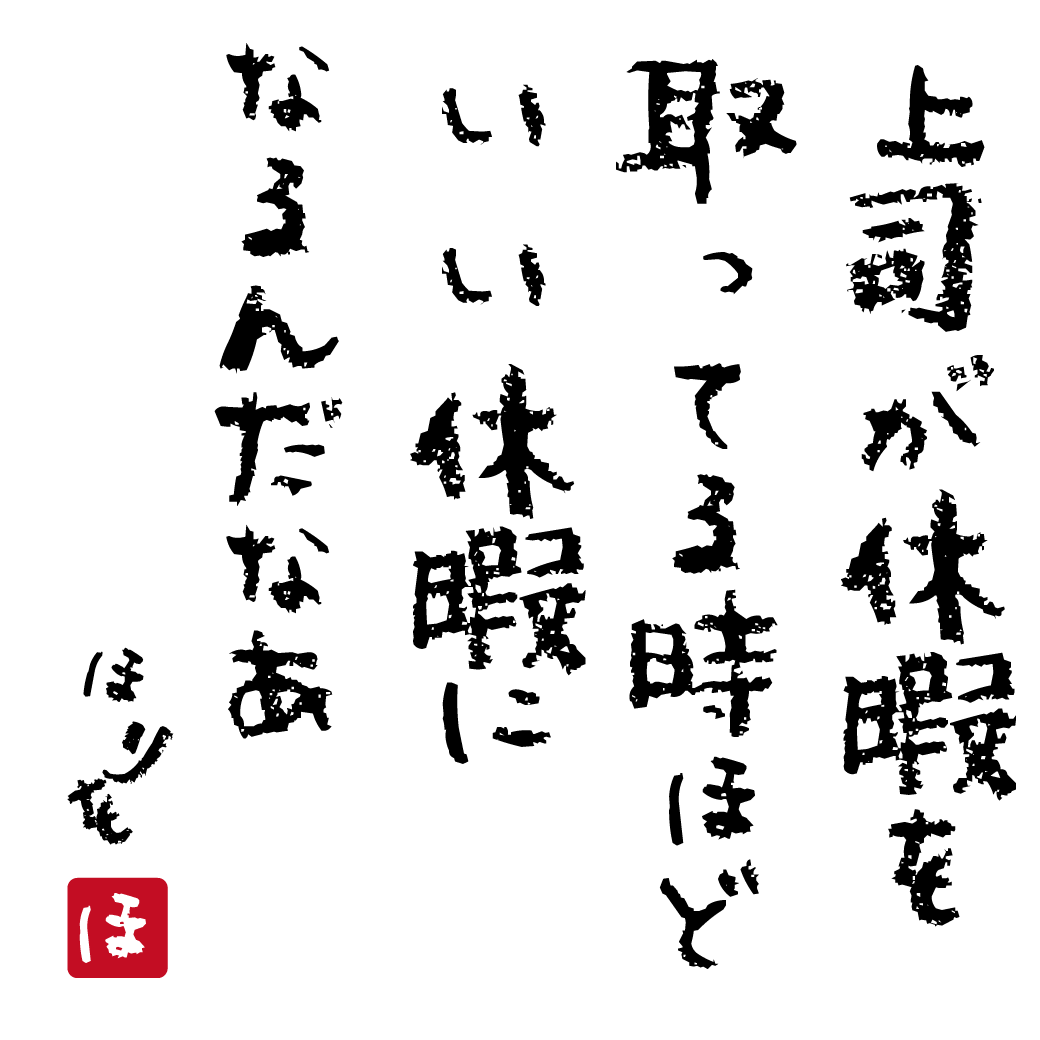 上司が休暇を
取ってる時ほど
いい休暇に
なるんだなあ
ほりを
ほ